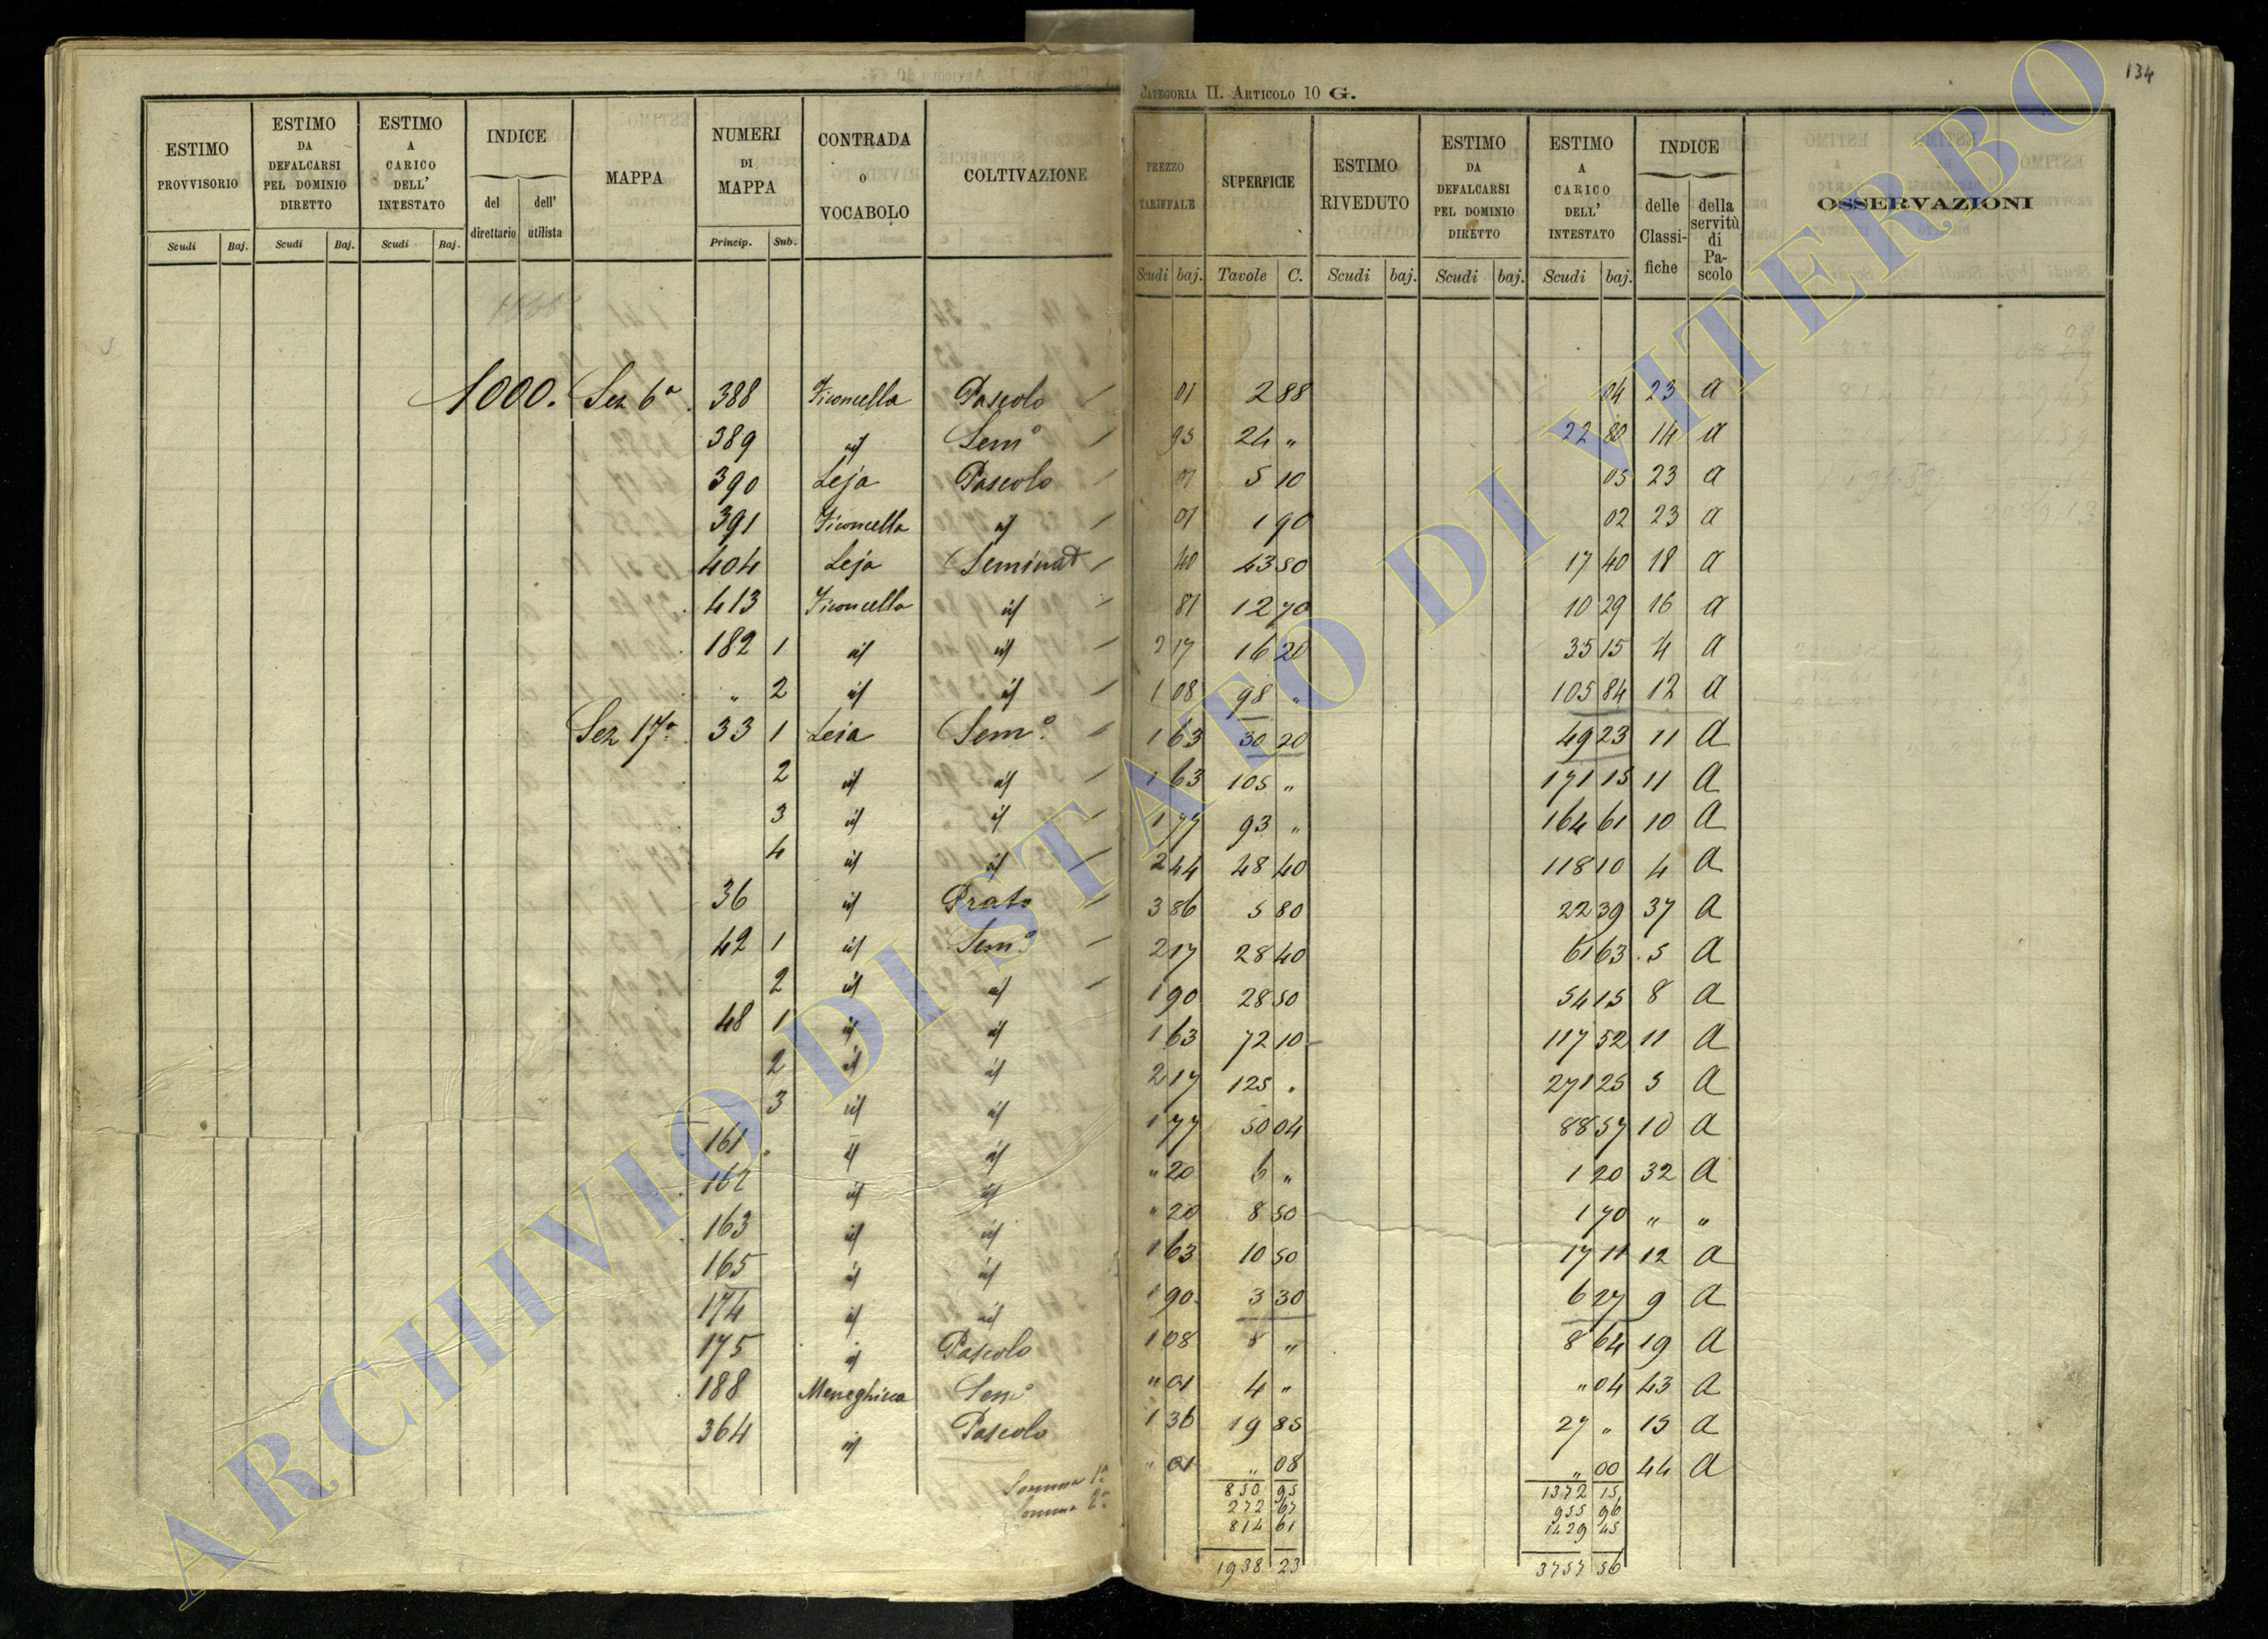 134
CATEGORIA II. ARTICOLO 10 G.
ESTIMO PROVVISORIO Scudi Baj.
ESTIMO DA DEFALCARSI PEL DOMINIO DIRETTO Scudi Baj.
ESTIMO A CARICO DELL' INTESTATO Scudi Baj.
INDICE del direttario dell' utilista
MAPPA
NUMERI DI MAPPA Princip. Sub.
CONTRADA o VOCABOLO
COLTIVAZIONE
PREZZO TARIFFALE Scudi baj.
SUPERFICIE Tavole C.
ESTIMO RIVEDUTO Scudi baj.
ESTIMO DA DEFALCARSI PEL DOMINIO DIRETTO Scudi baj.
ESTIMO A CARICO DELL' INTESTATO Scudi baj.
INDICE delle Classifiche della servitù di Pascolo
OSSERVAZIONI
1000. Sez 6a 388 Ficoncella Pascolo 01 2 88 04 23 a
389 id Semo 95 24 „ 22 80 14 a
390 Leja Pascolo 01 5 10 05 23 a
391 Ficoncella id 01 1 90 02 23 a
404 Leja Seminat 40 43 50 17 40 18 a
413 Ficoncella id 81 12 70 10 29 16 a
182 1 id id 2 17 16 20 35 15 4 a
„ 2 id id 1 08 98 „ 105 84 12 a
Sez 17a 33 1 Leia Semo. 1 63 30 20 49 23 11 a
2 id id 1 63 105 „ 171 15 11 a
3 id id 1 77 93 „ 164 61 10 a
4 id id 2 44 48 40 118 10 4 a
36 id Prato 3 86 5 80 22 39 37 a
42 1 id Semo. 2 17 28 40 61 63 5 a
2 id id 1 90 28 50 54 15 8 a
48 1 id id 1 63 72 10 117 52 11 a
2 id id 2 17 125 „ 271 25 5 a
3 id id 1 77 50 04 88 57 10 a
161 id id „ 20 6 „ 1 20 32 a
162 id id „ 20 8 50 1 70 „ „
163 id id 1 63 10 50 17 11 12 a
165 id id 1 90 3 30 6 27 9 a
174 id id 1 08 8 „ 8 64 19 a
175 id Pascolo „ 01 4 „ „ 04 43 a
188 Meneghicca Semo 1 36 19 85 27 „ 15 a
364 id Pascolo „ 01 „ 08 „ 00 44 a
850 95 1372 15
Somma 1a 272 67 955 96
Somma 2a 814 61 1429 45
1938 23 3757 56
ARCHIVIO DI STATO DI VITERBO